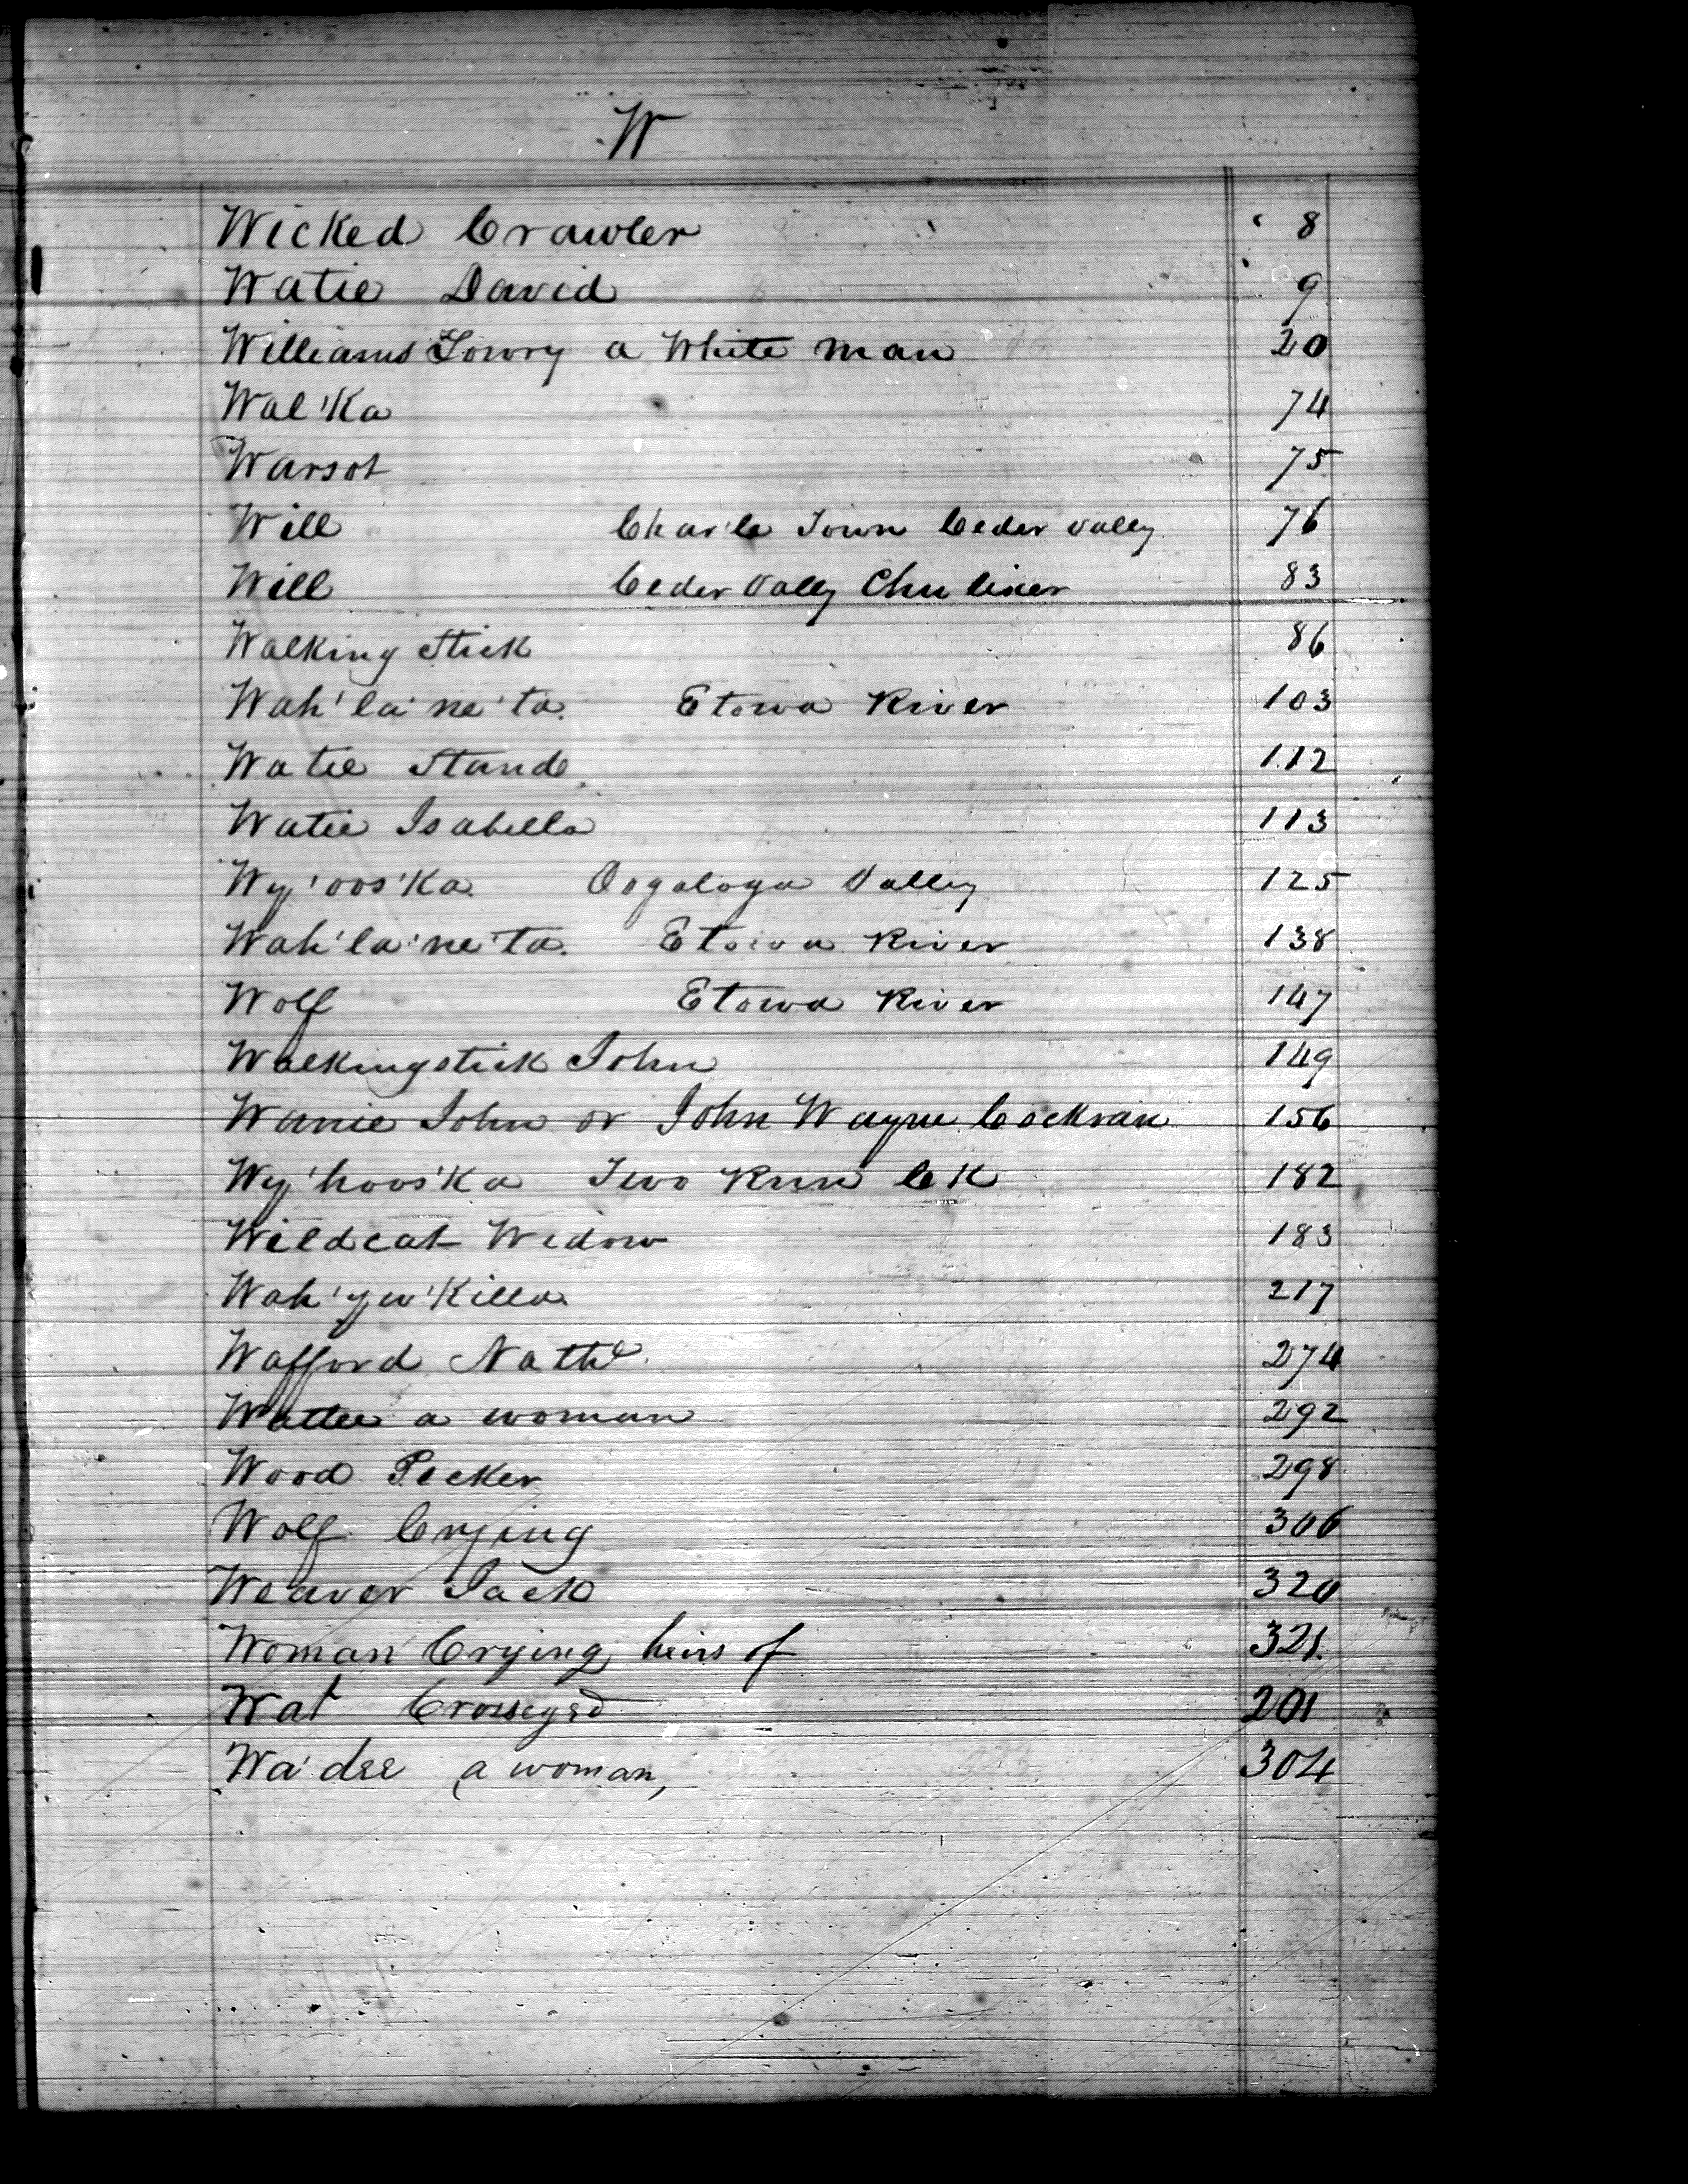 W
Wicked Crawler 8
Watie David 9
Williams Lowry a White man 20
Wal'ka 74
Warsot 75
Will Char'le Town Ceder vally 76
Will Ceder Vally Chu 83
Walking Stick 86
Wah'la'ne'ta. Etowa River 103
Watie Stand 112
Watie Isabella 113
Wy'oos'ka Oogaloga Valley 125
Wah'la'ne'ta. Etowa River 138
Wolf Etowa River 147
Walkingstick John 149
Wanie John or John Wayne Cockran 156
Wy'hoos'ka Two Run CK 182
Wildcat Widow 183
Wah'ya'Killa 217
Wafford Nathl. 274
Wattee a woman 292
Wood Pecker 298
Wolf Crying 306
Weaver Jack 320
Woman Crying heirs of 321.
Wat Crosseyed 201
Wa'dee (a woman, 304